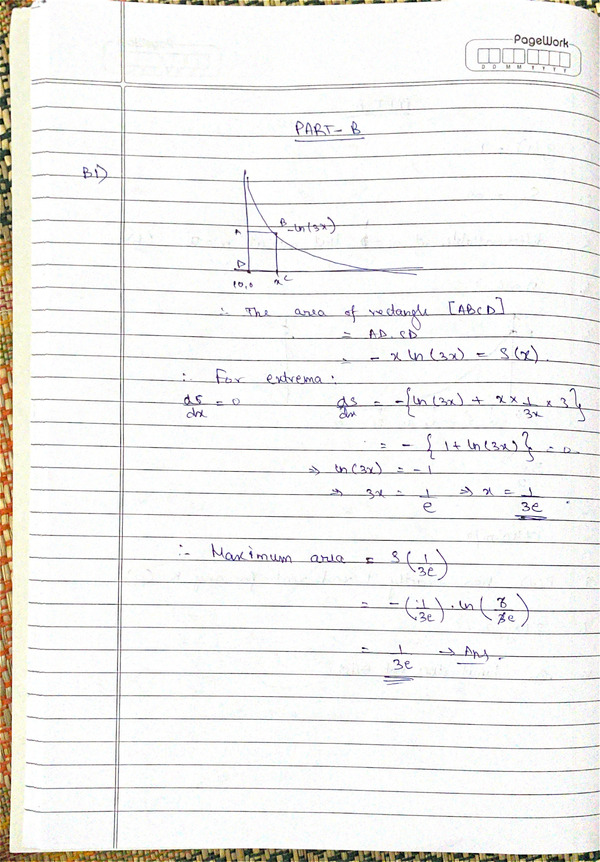 PageWork
D D M M Y Y Y Y
PART-B
B1)
A
B -ln(3x)
D
(0,0
x C
∴ The area of rectangle [ABCD]
= AD.CD
= -x ln(3x) = S(x).
∴ For extrema:
dS/dx = 0    dS/dx = -{ln(3x) + x × 1/3x × 3}
= -{1+ln(3x)} = 0
⇒ ln(3x) = -1
⇒ 3x = 1/e ⇒ x = 1/3e
∴ Maximum area = S(1/3e)
= -(1/3e).ln(3/3e)
= 1/3e → Ans.